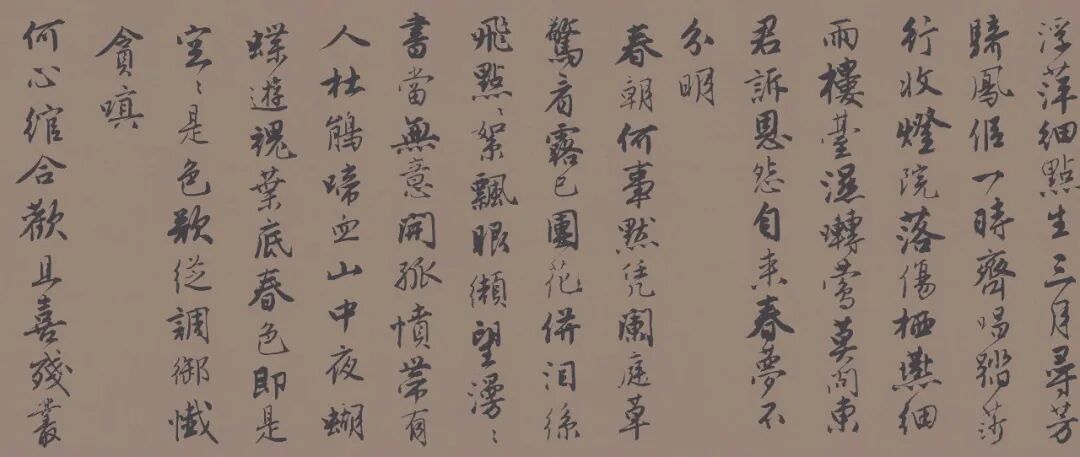 浮萍細點生三月尋芳
騎鳳侶一時齊唱踏莎
行收燈院落傷栖燕細
雨樓臺濕囀鶯莫問東
君訴恩怨自来春夢不
分明
春朝何事黙凭闌庭草
驚看露已團花倂泪絲
飛點〻絮飄眼纈望漫〻
書當無意開孤憤帶有
人杜鵑啼血山中夜蝴
蝶遊魂葉底春色即是
空〻是色欲從調御懺
貪嗔
何心綰合歡且喜殘叢